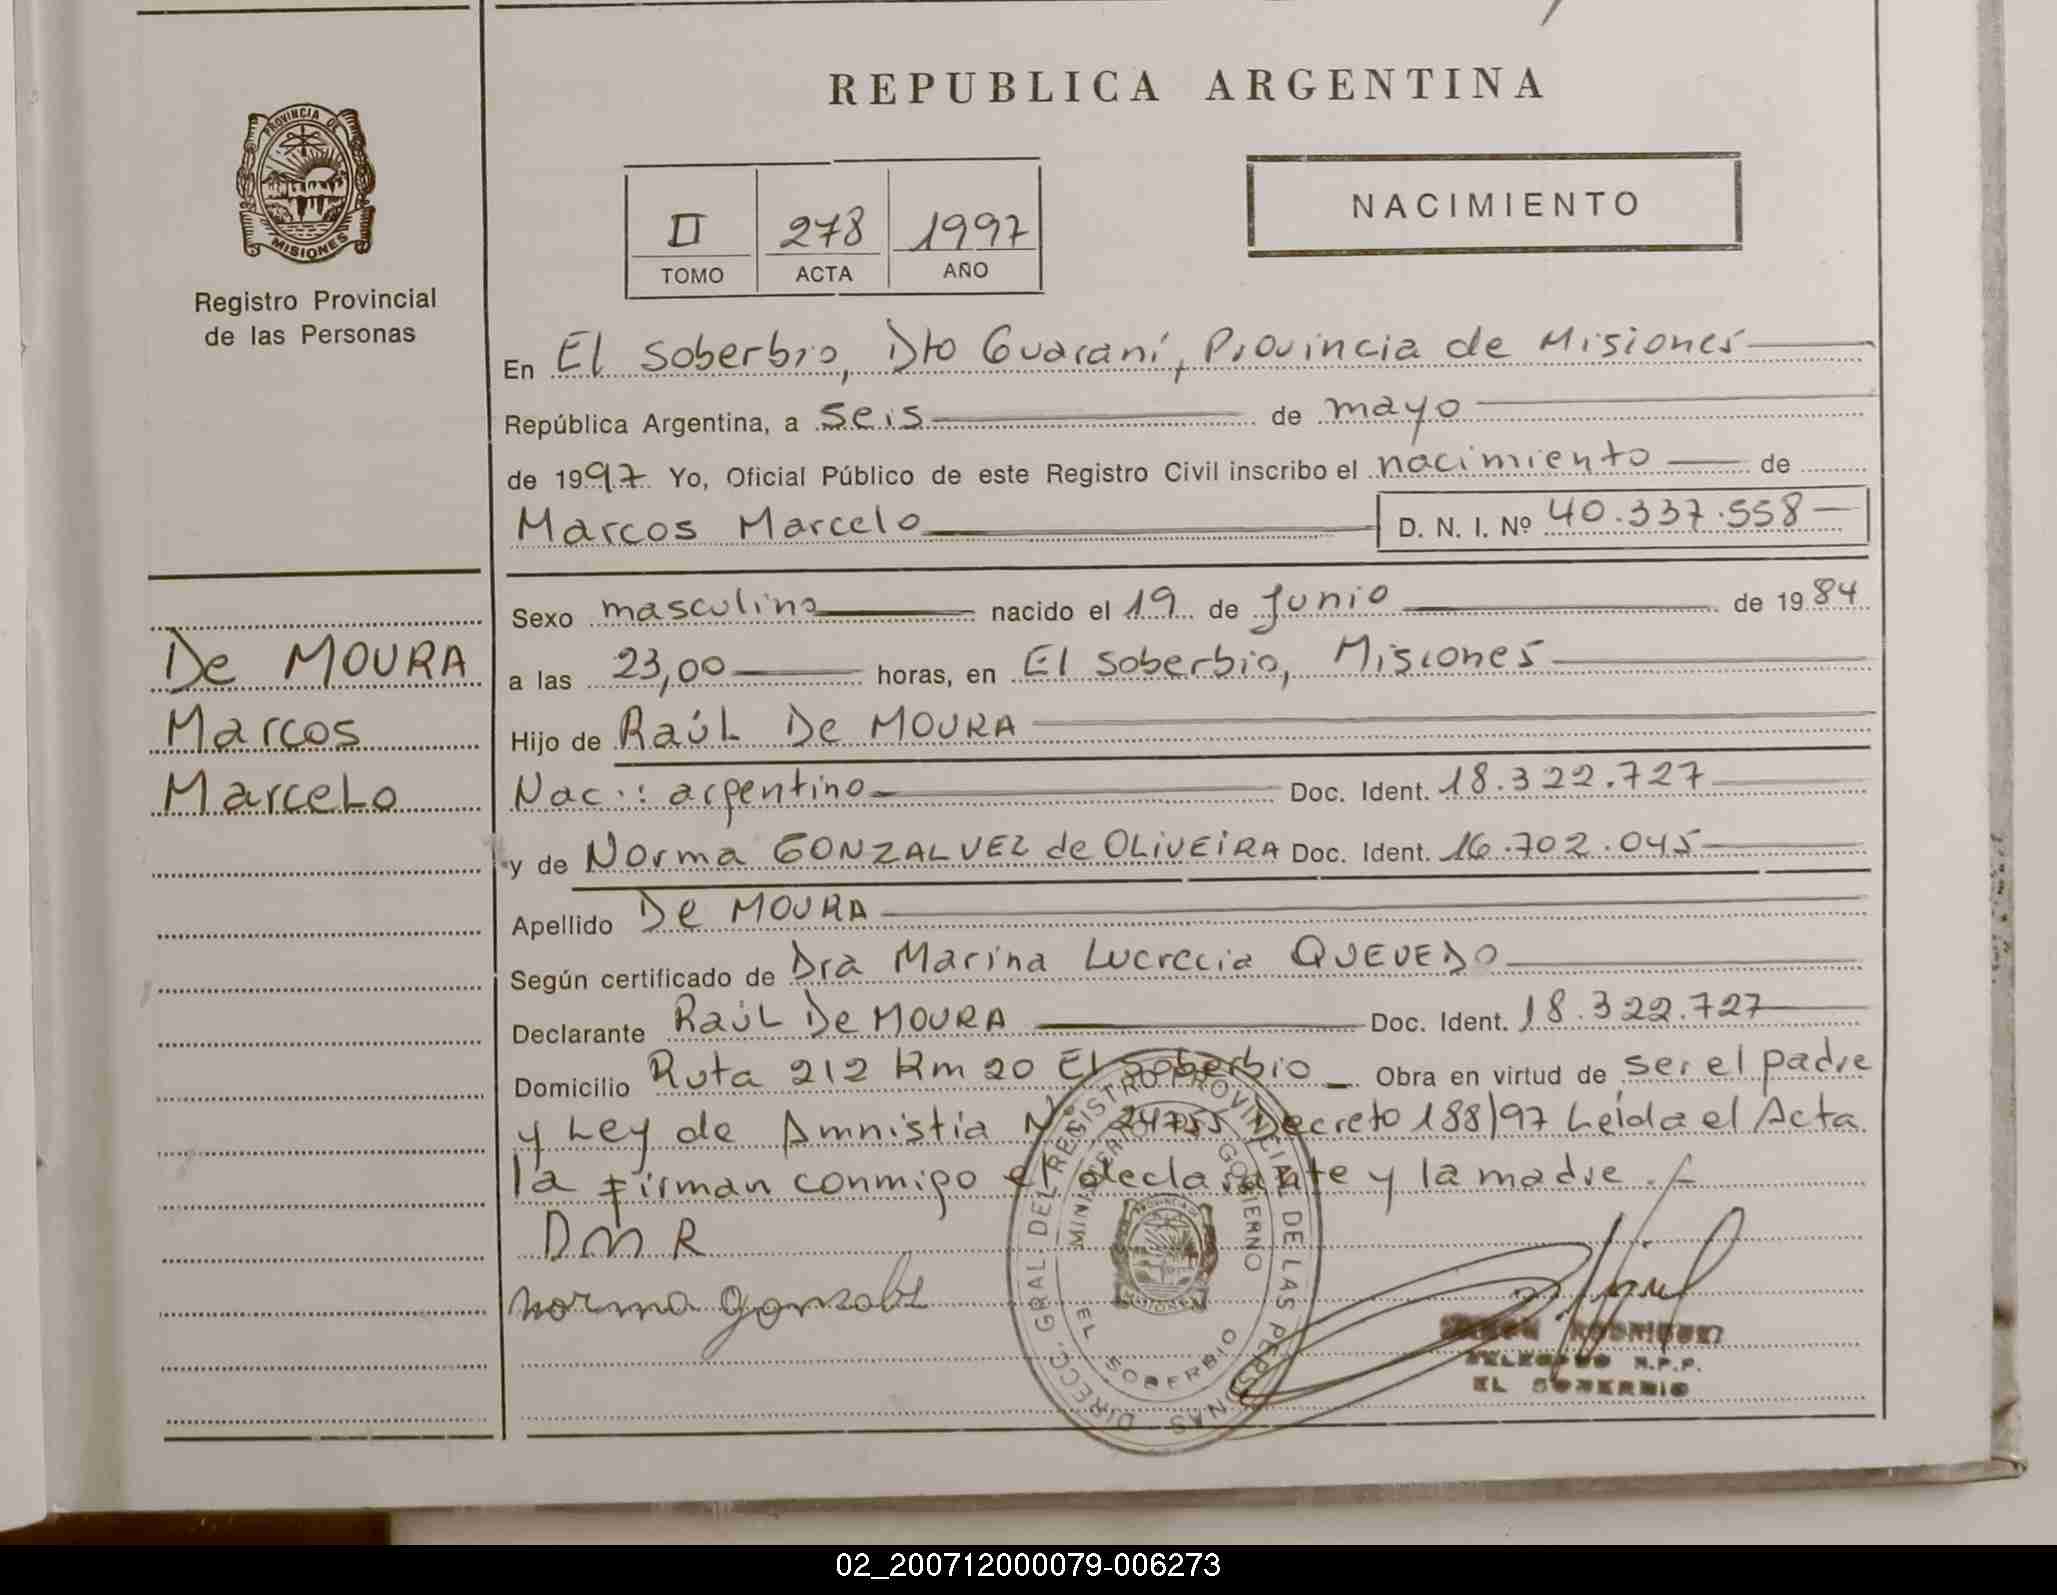 REPUBLICA ARGENTINA
PROVINCIA DE
MISIONES
Registro Provincial
de las Personas
II 278 1997
TOMO ACTA AÑO
NACIMIENTO
En El Soberbio, Dto Guaraní, Provincia de Misiones
República Argentina, a seis de mayo
de 1997 Yo, Oficial Público de este Registro Civil inscribo el nacimiento de
Marcos Marcelo D. N. I. Nº 40.337.558
Sexo masculino nacido el 19 de Junio de 1984
a las 23,00 horas, en El Soberbio, Misiones
Hijo de Raúl De MOURA
Nac.: argentino Doc. Ident. 18.322.727
y de Norma GONZALVEZ de OLIVEIRA Doc. Ident. 16.702.045
Apellido De MOURA
Según certificado de Dra Marina Lucrecia QUEVEDO
Declarante Raúl De MOURA Doc. Ident. 18.322.727
Domicilio Ruta 212 Km 20 El Soberbio Obra en virtud de ser el padre
y Ley de Amnistía Nº 24755 Decreto 188/97 Leída el Acta
la firman conmigo el declarante y la madre.
De MOURA
Marcos
Marcelo
DMR
norma
DIRECC. GRAL. DEL REGISTRO PROVINCIAL DE LAS PERSONAS
MINISTERIO GOBIERNO
EL SOBERBIO
RODRIGUEZ
DELEGADO R.P.P.
EL SOBERBIO
02_200712000079-006273